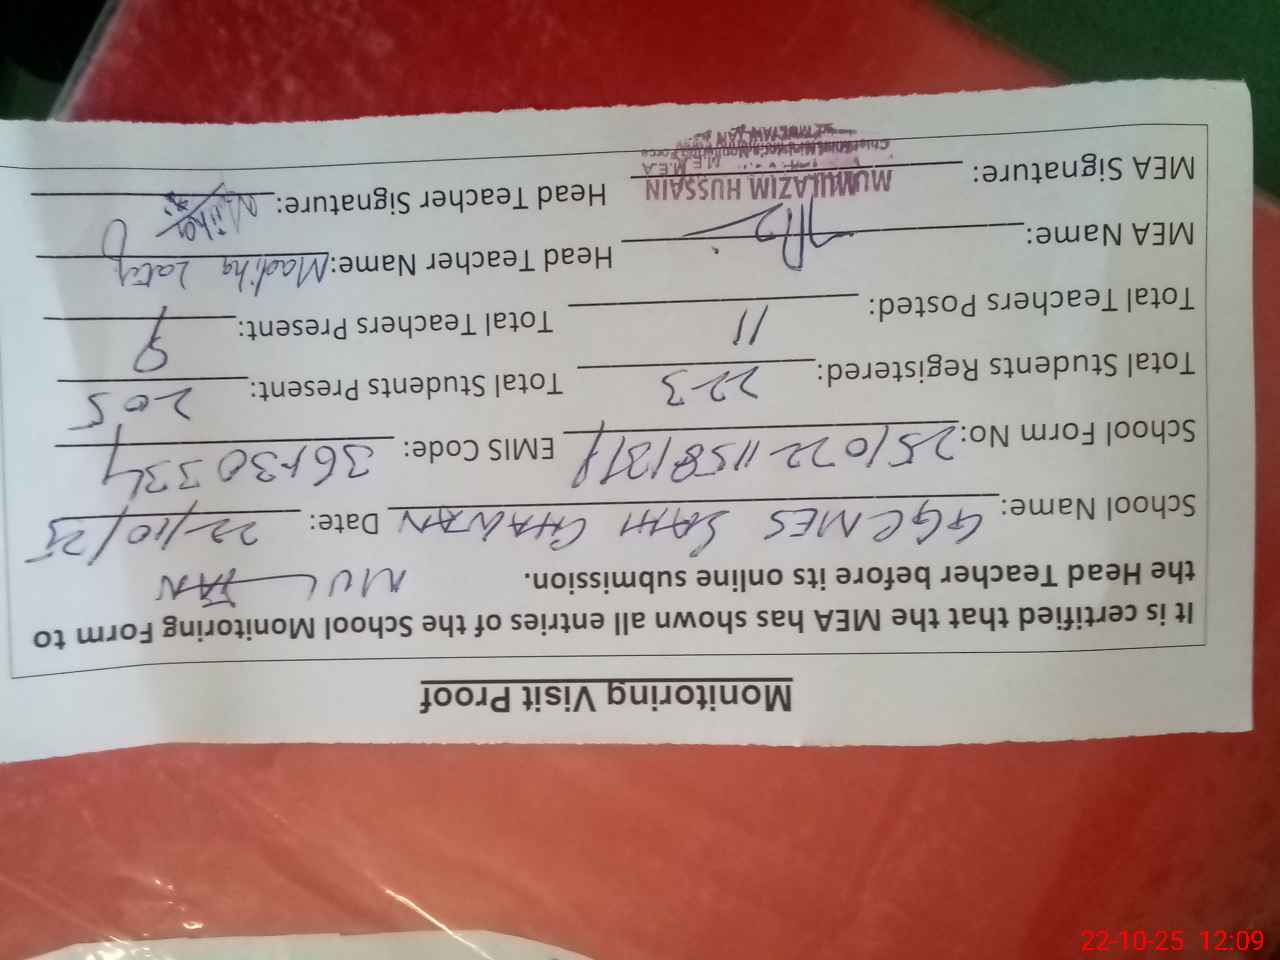 Monitoring Visit Proof
It is certified that the MEA has shown all entries of the School Monitoring Form to
the Head Teacher before its online submission. MULTAN
School Name: GGCMES SAHI CHAWAN Date: 22/10/25
School Form No: EMIS Code:
Total Students Registered: 223 Total Students Present: 205
Total Teachers Posted: 11 Total Teachers Present: 9
MEA Name: Head Teacher Name: Madiha
MEA Signature: Head Teacher Signature:
MUMLAZIM HUSSAIN
M.E.A
22-10-25 12:09